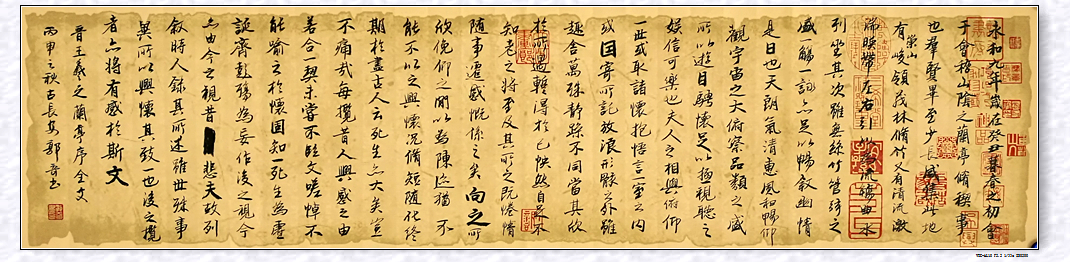 永和九年歲在癸丑暮春之初會
于會稽山陰之蘭亭脩禊事
也羣賢畢至少長咸集此地
有崇山峻領茂林脩竹又有清流激
湍映帶左右引以為流觴曲水
列坐其次雖無絲竹管絃之
盛一觴一詠亦足以暢敘幽情
是日也天朗氣清惠風和暢仰
觀宇宙之大俯察品類之盛
所以遊目騁懷足以極視聽之
娛信可樂也夫人之相與俯仰
一世或取諸懷抱悟言一室之內
或因寄所託放浪形骸之外雖
趣舍萬殊靜躁不同當其欣
於所遇暫得於己怏然自足不
知老之將至及其所之既惓情
隨事遷感慨係之矣向之所
欣俛仰之閒以為陳迹猶不
能不以之興懷況脩短隨化終
期於盡古人云死生亦大矣豈
不痛哉每攬昔人興感之由
若合一契未嘗不臨文嗟悼不
能喻之於懷固知一死生為虛
誕齊彭殤為妄作後之視今
亦由今之視昔悲夫故列
敘時人錄其所述雖世殊事
異所以興懷其致一也後之攬
者亦將有感於斯文
晉王羲之蘭亭序全文
丙申之秋古長安郭書